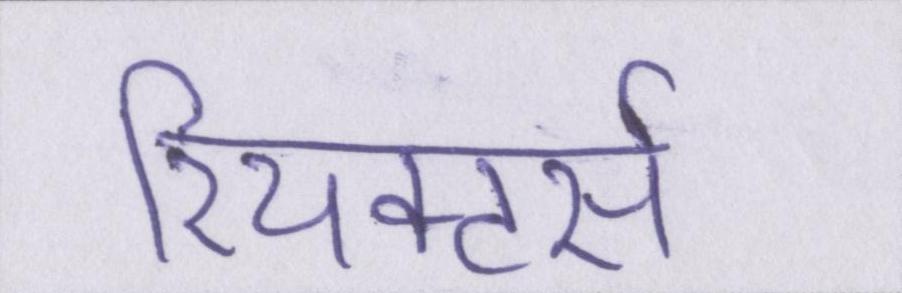 रियक्टर्स